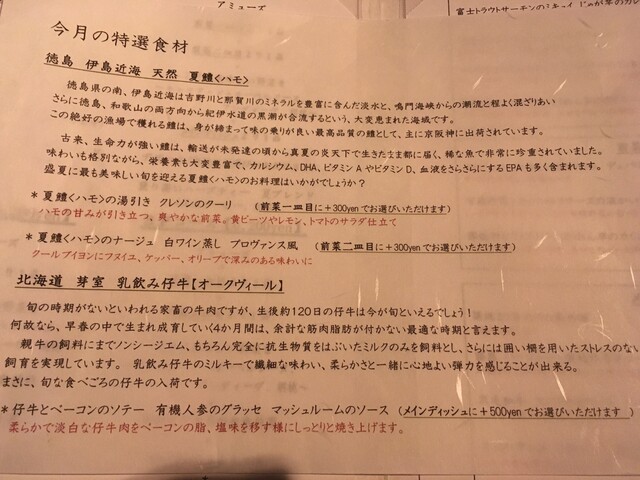 アミューズ
今月の特選食材
徳島 伊島近海 天然 夏鱧<ハモ>
徳島県の南、伊島近海は吉野川と那賀川のミネラルを豊富に含んだ淡水と、鳴門海峡からの潮流と程よく混ざりあい
さらに徳島、和歌山の両方向から紀伊水道の黒潮が合流するという、大変恵まれた海域です。
この絶好の漁場で穫れる鱧は、身が締まって味の乗りが良い最高品質の鱧として、主に京阪神に出荷されています。
古来、生命力が強い鱧は、輸送が未発達の頃から真夏の炎天下で生きたまま都に届く、稀な魚で非常に珍重されていました。
味わいも格別ながら、栄養素も大変豊富で、カルシウム、DHA、ビタミンAやビタミンD、血液をさらさらにするEPAも多く含まれます。
盛夏に最も美味しい旬を迎える夏鱧<ハモ>のお料理はいかがでしょうか?
* 夏鱧<ハモ>の湯引き クレソンのクーリ (前菜一皿目に+300yenでお選びいただけます)
ハモの甘みが引き立つ、爽やかな前菜。黄ビーツやレモン、トマトのサラダ仕立て
* 夏鱧<ハモ>のナージュ 白ワイン蒸し プロヴァンス風 (前菜二皿目に+300yenでお選びいただけます)
クールブイヨンにフヌイユ、ケッパー、オリーブで深みのある味わいに
北海道 芽室 乳飲み仔牛【オークヴィール】
旬の時期がないといわれる家畜の牛肉ですが、生後約120日の仔牛は今が旬といえるでしょう!
何故なら、早春の中で生まれ成育していく4か月間は、余計な筋肉脂肪が付かない最適な時期と言えます。
親牛の飼料にまでノンシージエム、もちろん完全に抗生物質をはぶいたミルクのみを飼料とし、さらには囲い柵を用いたストレスのない
飼育を実現しています。 乳飲み仔牛のミルキーで繊細な味わい、柔らかさと一緒に心地よい弾力を感じることが出来る。
まさに、旬な食べごろの仔牛の入荷です。
* 仔牛とベーコンのソテー 有機人参のグラッセ マッシュルームのソース (メインディッシュに+500yenでお選びいただけます )
柔らかで淡白な仔牛肉をベーコンの脂、塩味を移す様にしっとりと焼き上げます。